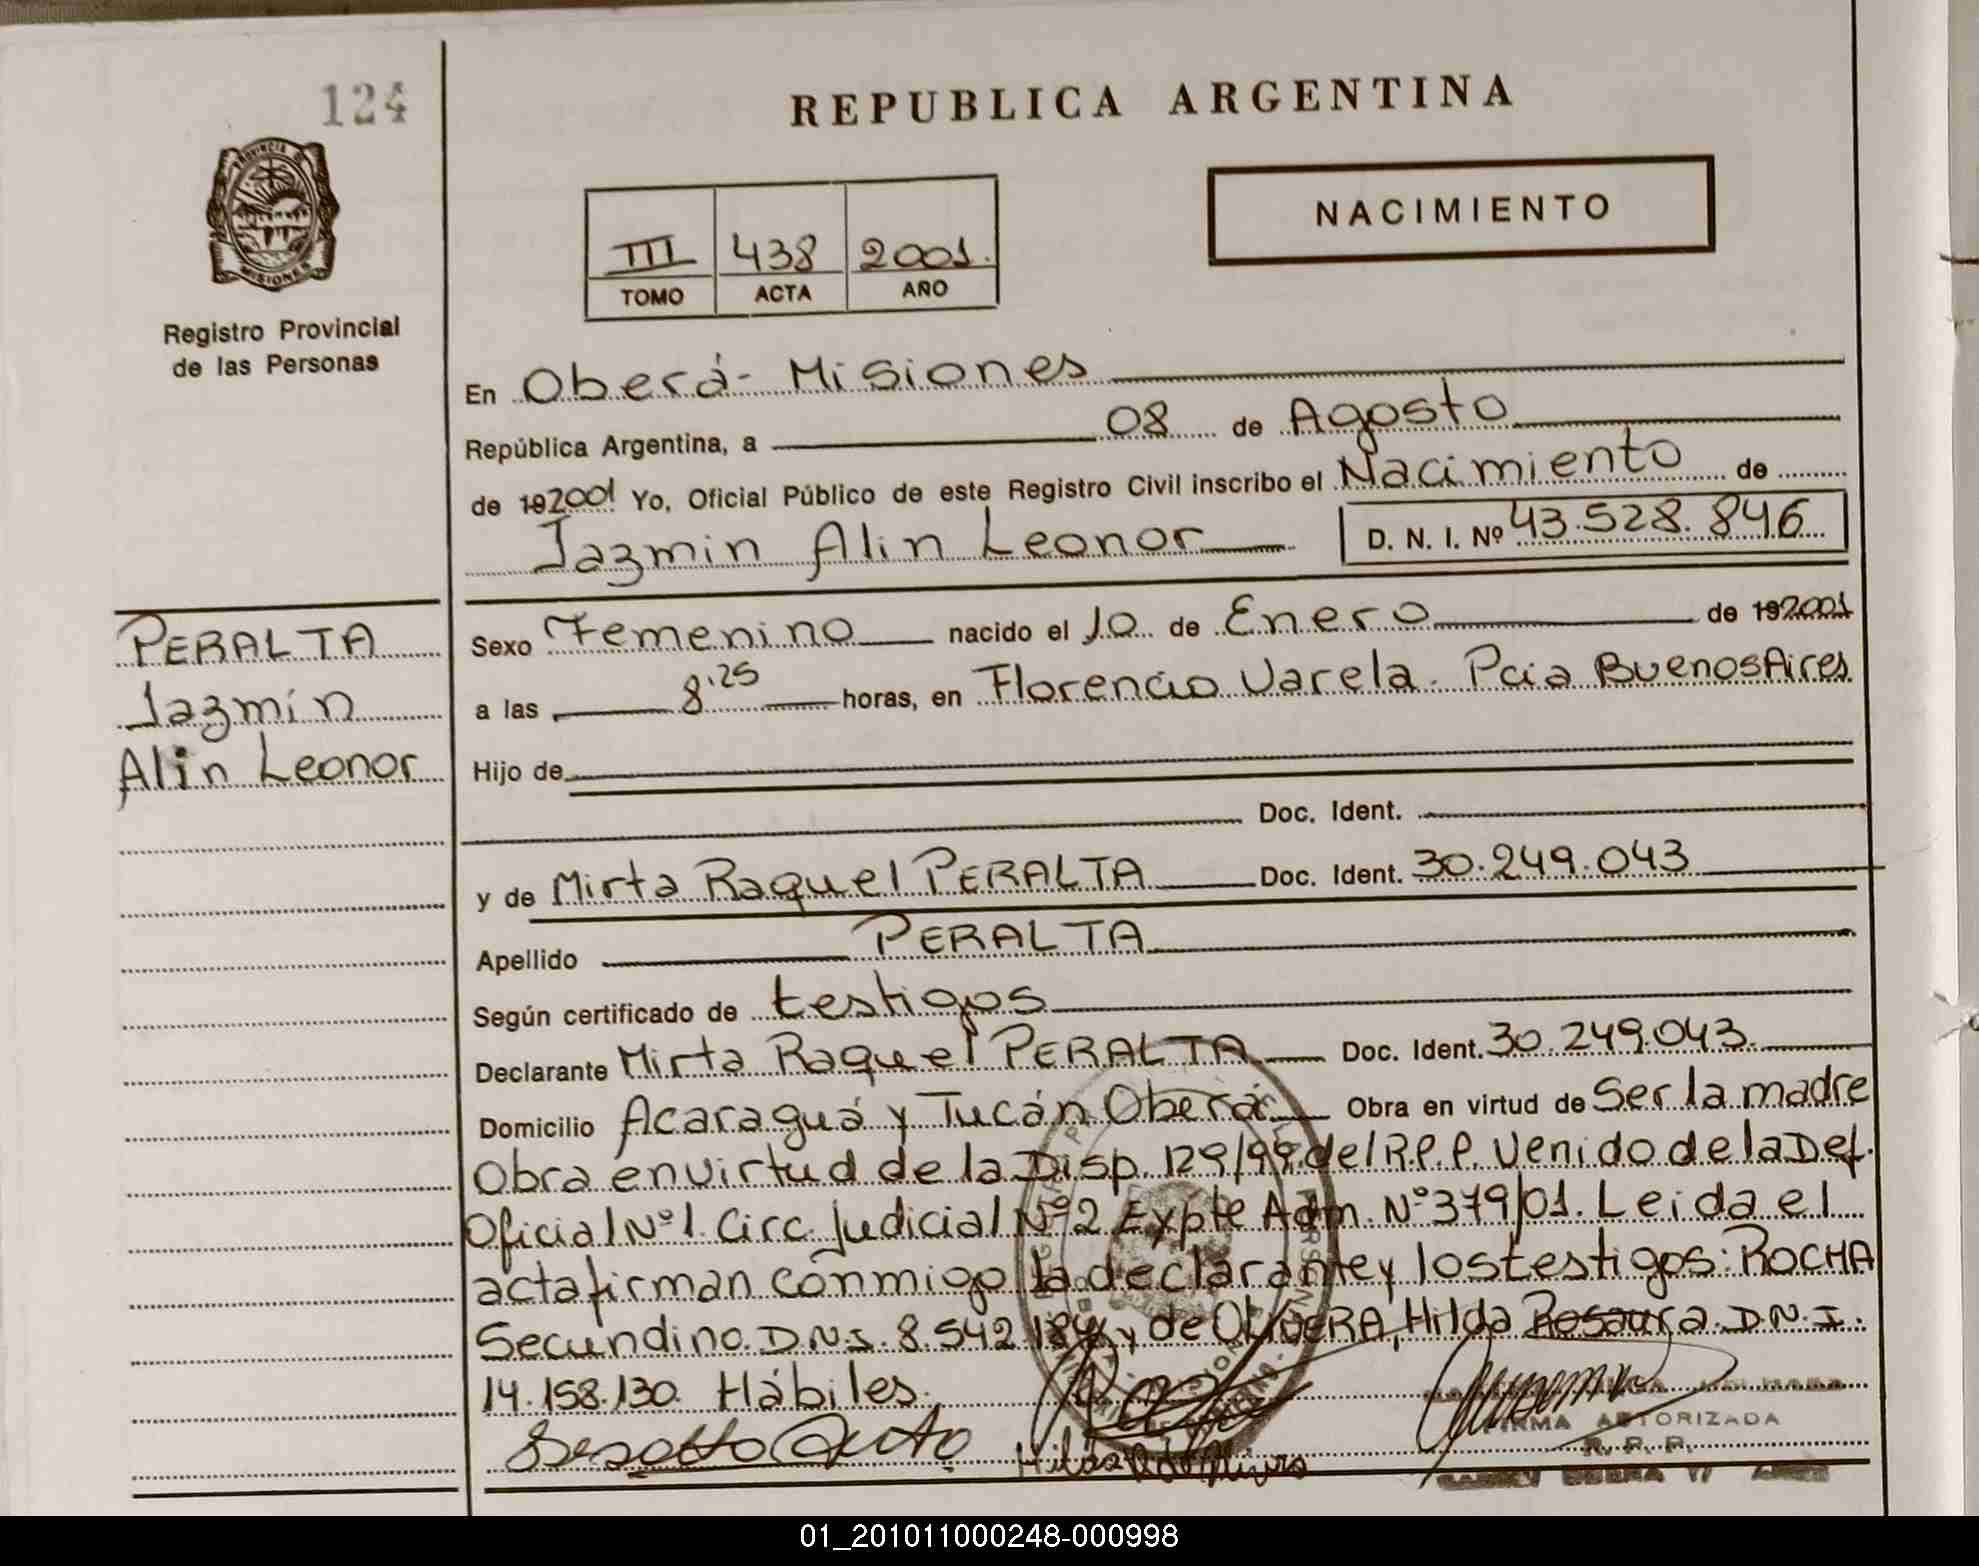 124
REPUBLICA ARGENTINA
PROVINCIA DE
MISIONES
NACIMIENTO
III 438 2001.
TOMO ACTA AÑO
Registro Provincial
de las Personas
En Oberá- Misiones
República Argentina, a 08 de Agosto
de 192001 Yo, Oficial Público de este Registro Civil inscribo el Nacimiento de
Jazmin Alin Leonor D. N. I. Nº 43.528.846
PERALTA
Jazmín
Alin Leonor
Sexo Femenino nacido el 10 de Enero de 192001
a las 8'25 horas, en Florencio Varela. Pcia Buenos Aires
Hijo de
Doc. Ident.
y de Mirta Raquel PERALTA Doc. Ident. 30.249.043
Apellido PERALTA
Según certificado de testigos
Declarante Mirta Raquel PERALTA Doc. Ident. 30.249.043.
Domicilio Acaraguá y Tucán Oberá Obra en virtud de Ser la madre
Obra en virtud de la Disp. 129/99 del R.P.P. Venido de la Def.
Oficial Nº 1. Circ. Judicial Nº 2 Expte Adm. Nº 379/01. Leida el
acta firman conmigo la declarante y los testigos: ROCHA
Secundino. D.N.I. 8.542.184 y de OLIVERA, Hilda Rosaura. D.N.I.
14.158.130. Hábiles.
FIRMA AUTORIZADA
R. P. P.
01_201011000248-000998